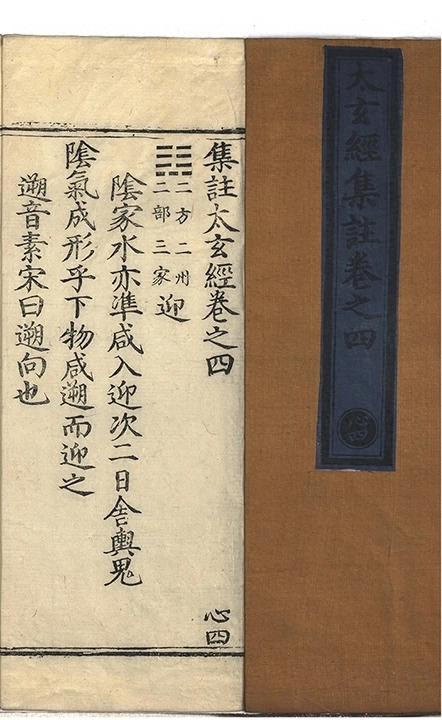 太玄經集註卷之四
心四
集註太玄經卷之四
心四
𝌯二方二州
二部三家迎
陰家水亦準咸入迎次二日舍輿鬼
陰氣成形乎下物咸遡而迎之
遡音素宋曰遡向也